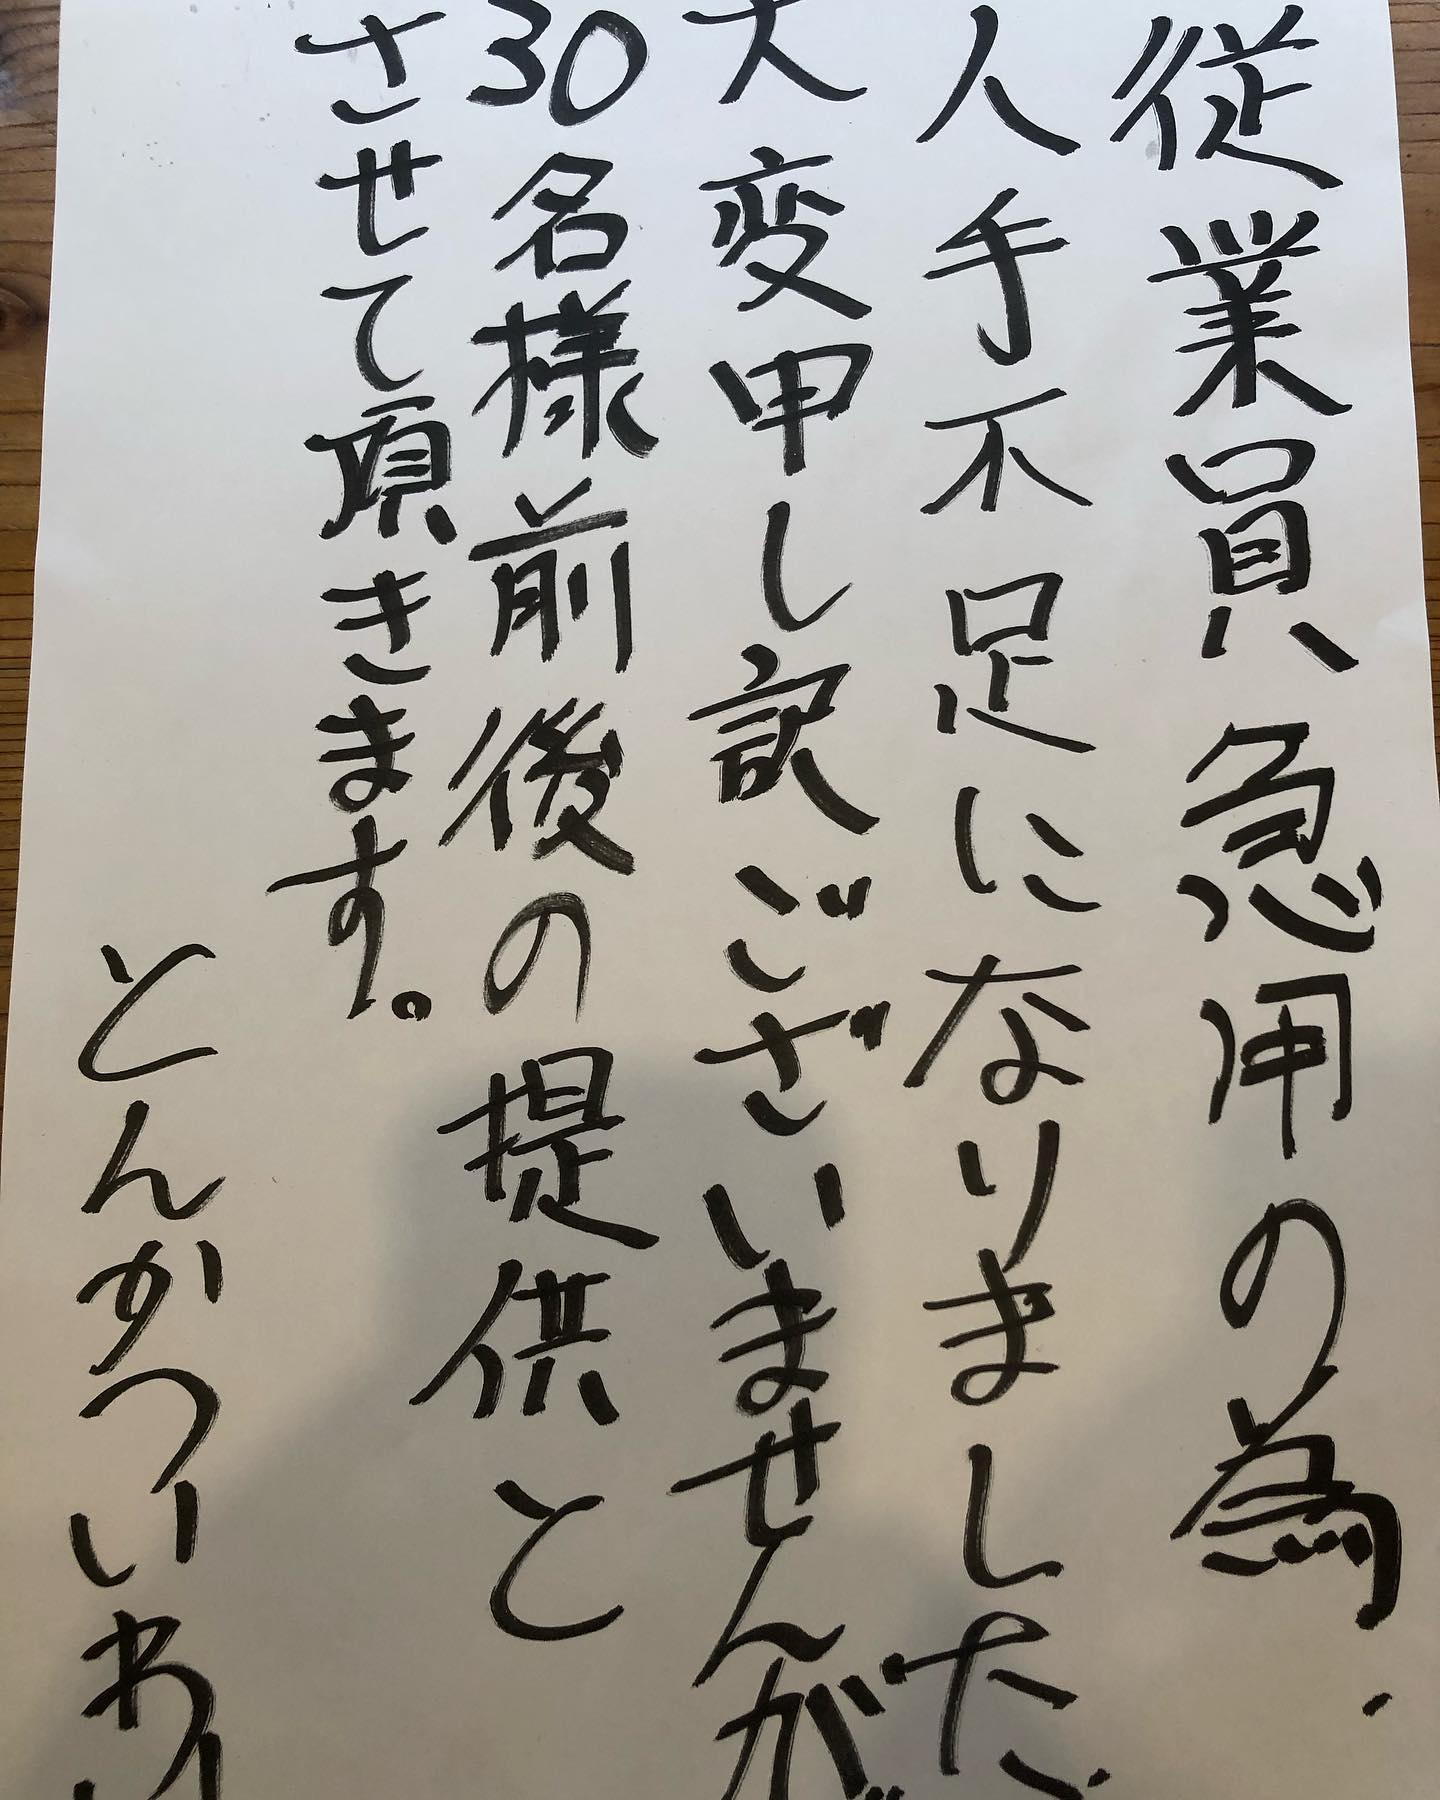 従業員急用の為、
人手不足になりました。
大変申し訳ございませんが
30名様前後の提供と
させて頂きます。
とんかついわい